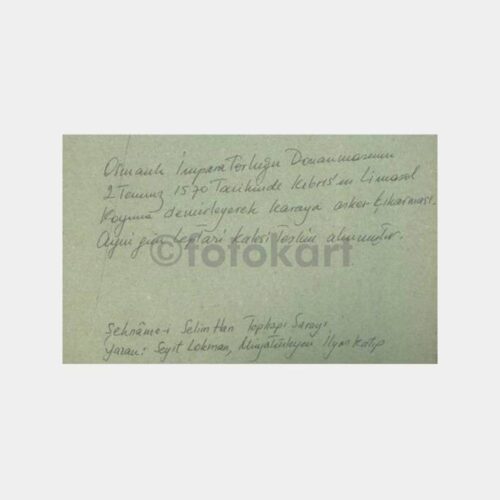 Osmanlı İmparatorluğu Donanmasının
2 Temmuz 1570 Tarihinde Kıbrıs'ın Limasol
Koyuna demirleyerek karaya asker çıkarması.
Aynı gün Leftari kalesi Teslim alınmıştır.
©fotokart
Şehnâme-i Selim Han Topkapı Sarayı
Yazan: Seyit Lokman, Minyatürleyen İlyas Katip